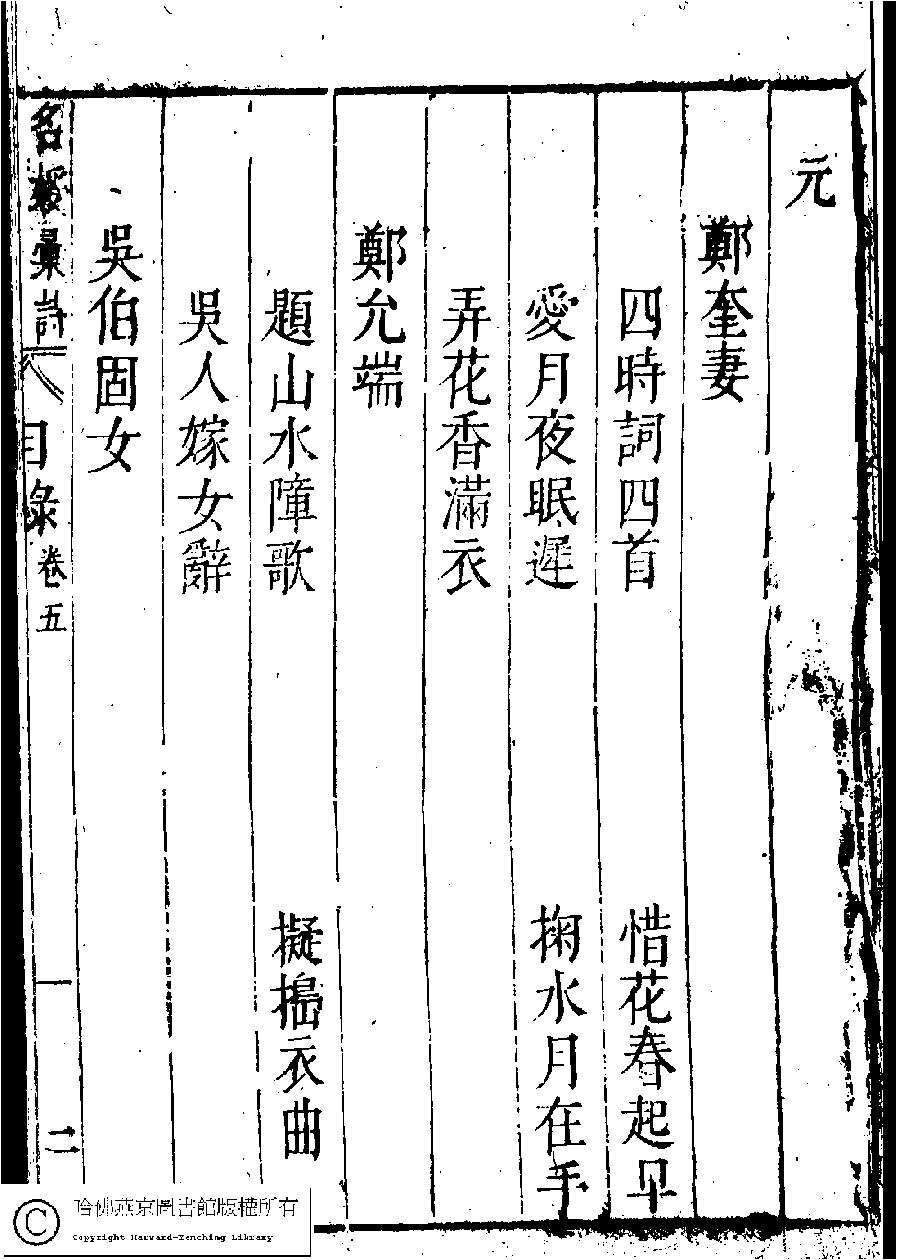 元
鄭奎妻
四時詞四首　惜花春起早
愛月夜眠遲　掬水月在手
弄花香滿衣
鄭允端
題山水障歌　擬搗衣曲
吳人嫁女辭
吳伯固女
名媛彙詩　目錄　卷五　一　二
哈佛燕京圖書館版權所有
Copyright Harvard-Yenching Library